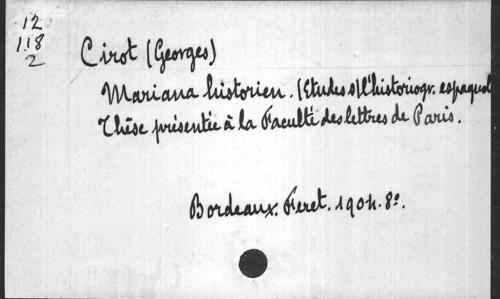 12
118
2
Cirot (Georges)
Mariana historien. (Etudes s/l'historiogr. espagnol
Thèse présentée à la Faculté des lettres de Paris.
Bordeaux. Feret. 1904. 8º.